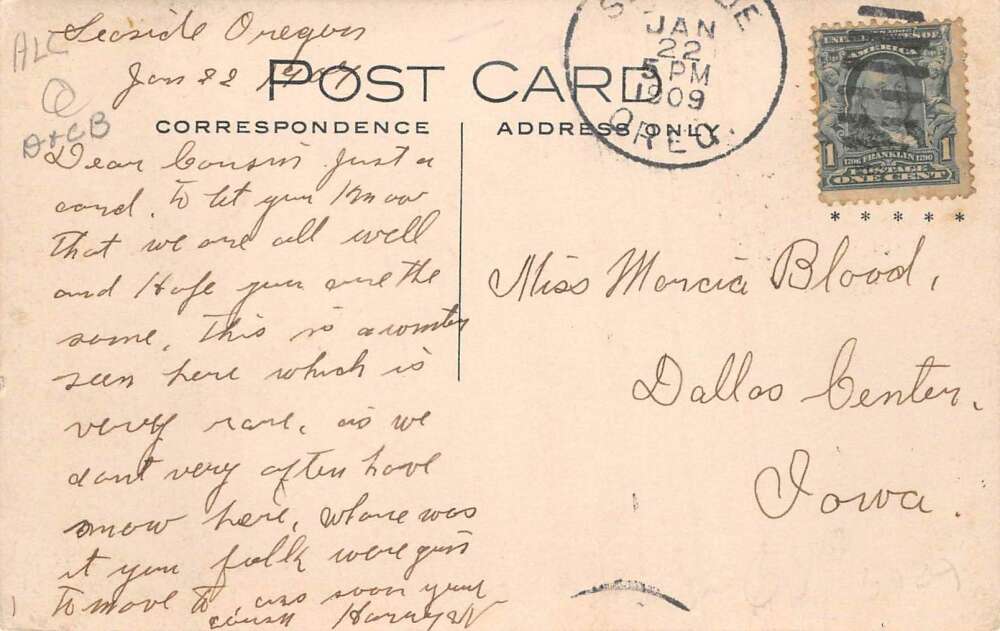 Seaside Oregon
Jan 22 1909
POST CARD
CORRESPONDENCE
ADDRESS ONLY
ALC
D+CB
Dear Cousin Just a
card. To let you Know
That we are all well
and Hope you are the
same, This is a winter
seen here which is
very rare, as we
dont very often have
snow here, Whare was
it you folk were goin
To move to, ans soon your
cousn Harry
JAN
22
5 PM
1909
OREG.
AMERICA
1 1
1706 FRANKLIN 1790
POSTAGE
ONE CENT
* * * * *
Miss Marcia Blood,
Dallas Center,
Iowa.